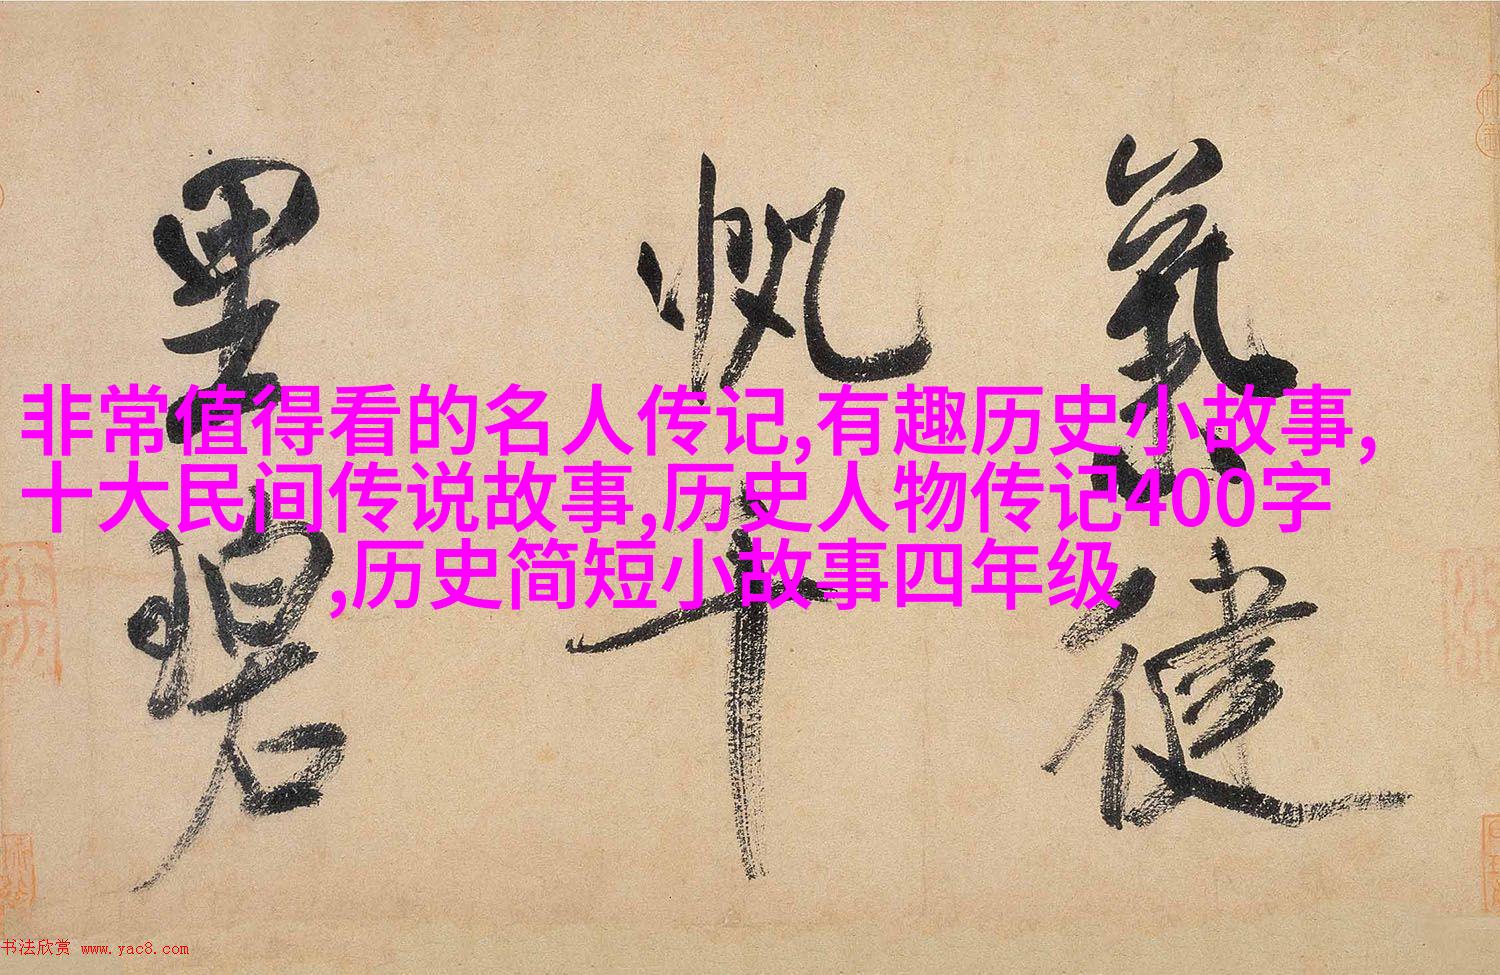 氣健
帆千
里碧
非常值得看的名人传记,有趣历史小故事,
十大民间传说故事,历史人物传记400字
,历史简短小故事四年级
书法欣赏 www.yac8.com